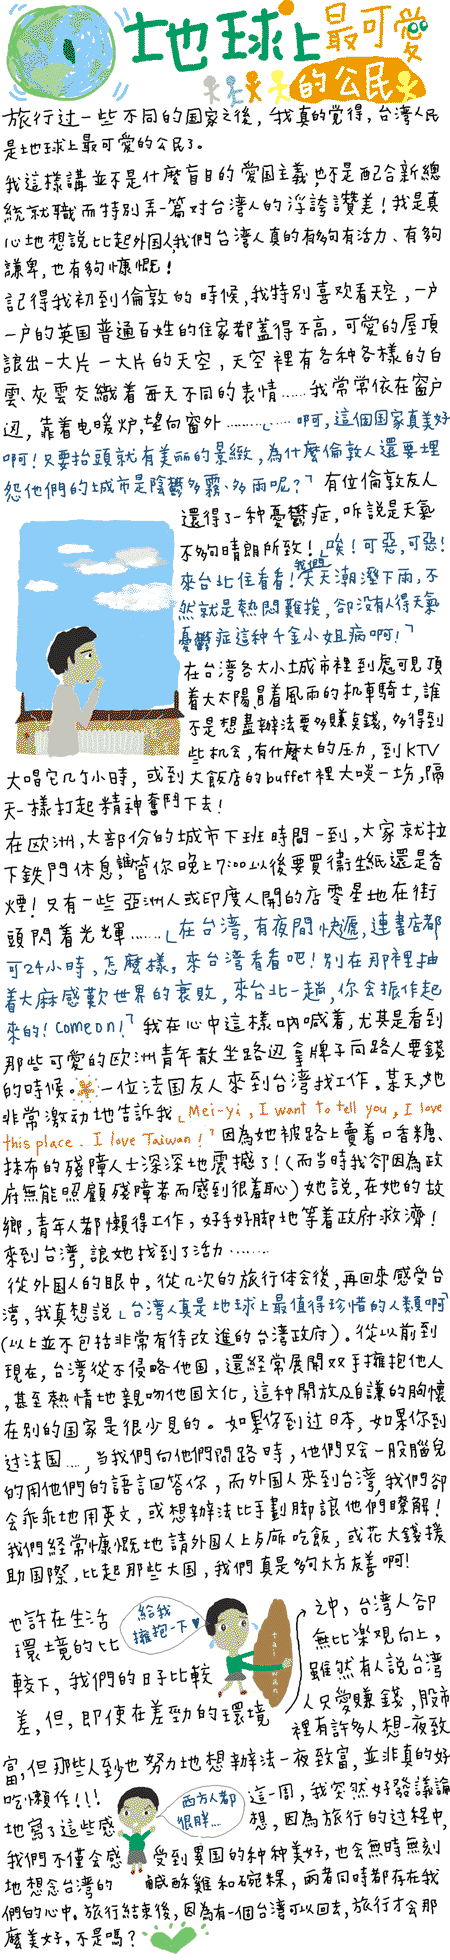 地球上最可愛
的公民
旅行过一些不同的国家之後,我真的覺得,台湾人民
是地球上最可愛的公民了。
我這樣講並不是什麼盲目的愛国主義,也不是配合新總
統就職而特別弄一篇对台湾人的浮誇讚美!我是真
心地想說比起外国人,我們台湾人真的有夠有活力、有夠
謙卑,也有夠慷慨!
記得我初到倫敦的時候,我特別喜欢看天空,一户
一户的英国普通百姓的住家都蓋得不高,可愛的屋頂
讓出一大片一大片的天空,天空裡有各种各樣的白
雲、灰雲交織着每天不同的表情……我常常依在窗户
辺,靠着电暖炉,望向窗外………「……啊,這個国家真美好
啊!只要抬頭就有美丽的景緻,為什麼倫敦人還要埋
怨他們的城市是陰鬱多霧、多雨呢?」有位倫敦友人
還得了一种憂鬱症,听說是天氣
不夠晴朗所致!「唉!可惡,可惡!
來台北住看看!我們天天潮溼下雨,不
然就是熱悶難挨,卻没有人得天氣
憂鬱症這种千金小姐病啊!」
在台湾各大小城市裡到處可見頂
着大太陽、冒着風雨的机車騎士,誰
不是想盡辦法要多賺点錢,多得到
些机会,有什麼大的压力,到KTV
大唱它几个小時,或到大飯店的buffet裡大啖一场,隔
天一樣打起精神奮鬥下去!
在欧洲,大部份的城市下班時間一到,大家就拉
下鉄門休息,誰管你晚上7:00以後要買衛生紙還是香
煙!只有一些亞洲人或印度人開的店零星地在街
頭閃着光輝……「在台湾,有夜間快遞,連書店都
可24小時,怎麼樣,來台湾看看吧!別在那裡抽
着大麻感歎世界的衰敗,來台北一趟,你会振作起
來的!Come on!」我在心中這樣吶喊着,尤其是看到
那些可愛的欧洲青年散坐路辺拿牌子向路人要錢
的時候。一位法国友人來到台湾找工作,某天,她
非常激动地告訴我「Mei-yi, I want to tell you, I love
this place. I love Taiwan!」因為她被路上賣着口香糖、
抹布的殘障人士深深地震撼了!(而当時我卻因為政
府無能照顧殘障者而感到很羞恥)她說,在她的故
鄉,青年人都懶得工作,好手好脚地等着政府救濟!
來到台湾,讓她找到了活力………
從外国人的眼中,從几次的旅行体会後,再回來感受台
湾,我真想說「台湾人真是地球上最值得珍惜的人類啊」
(以上並不包括非常有待改進的台湾政府)。從以前到
現在,台湾從不侵略他国,還經常展開双手擁抱他人
,甚至熱情地親吻他国文化,這种開放及自謙的胸懷
在別的国家是很少見的。如果你到过日本,如果你到
过法国…,当我們向他們問路時,他們只会一股腦兒
的用他們的語言回答你,而外国人來到台湾,我們卻
会乖乖地用英文,或想辦法比手劃脚讓他們瞭解!
我們經常慷慨地請外国人上歺厛吃飯,或花大錢援
助国際,比起那些大国,我們真是夠大方友善啊!
也許在生活
環境的比
較下,我們的日子比較
差,但,即使在差勁的環境
給我
擁抱一下
taiwan
之中,台湾人卻
無比樂观向上,
雖然有人說台湾
人只愛賺錢,股市
裡有許多人想一夜致
富,但那些人到少也努力地想辦法一夜致富,並非真的好
吃懶作!!!
這一周,我突然好發議論
地寫了這些感
想,因為旅行的过程中,
西方人都
很胖…
我們不僅会感受到異国的种种美好,也会無時無刻
地想念台湾的鹹酥雞和碗粿,兩者同時都存在我
們的心中。旅行結束後,因為有一個台湾可以回去,旅行才会那
麼美好,不是嗎?